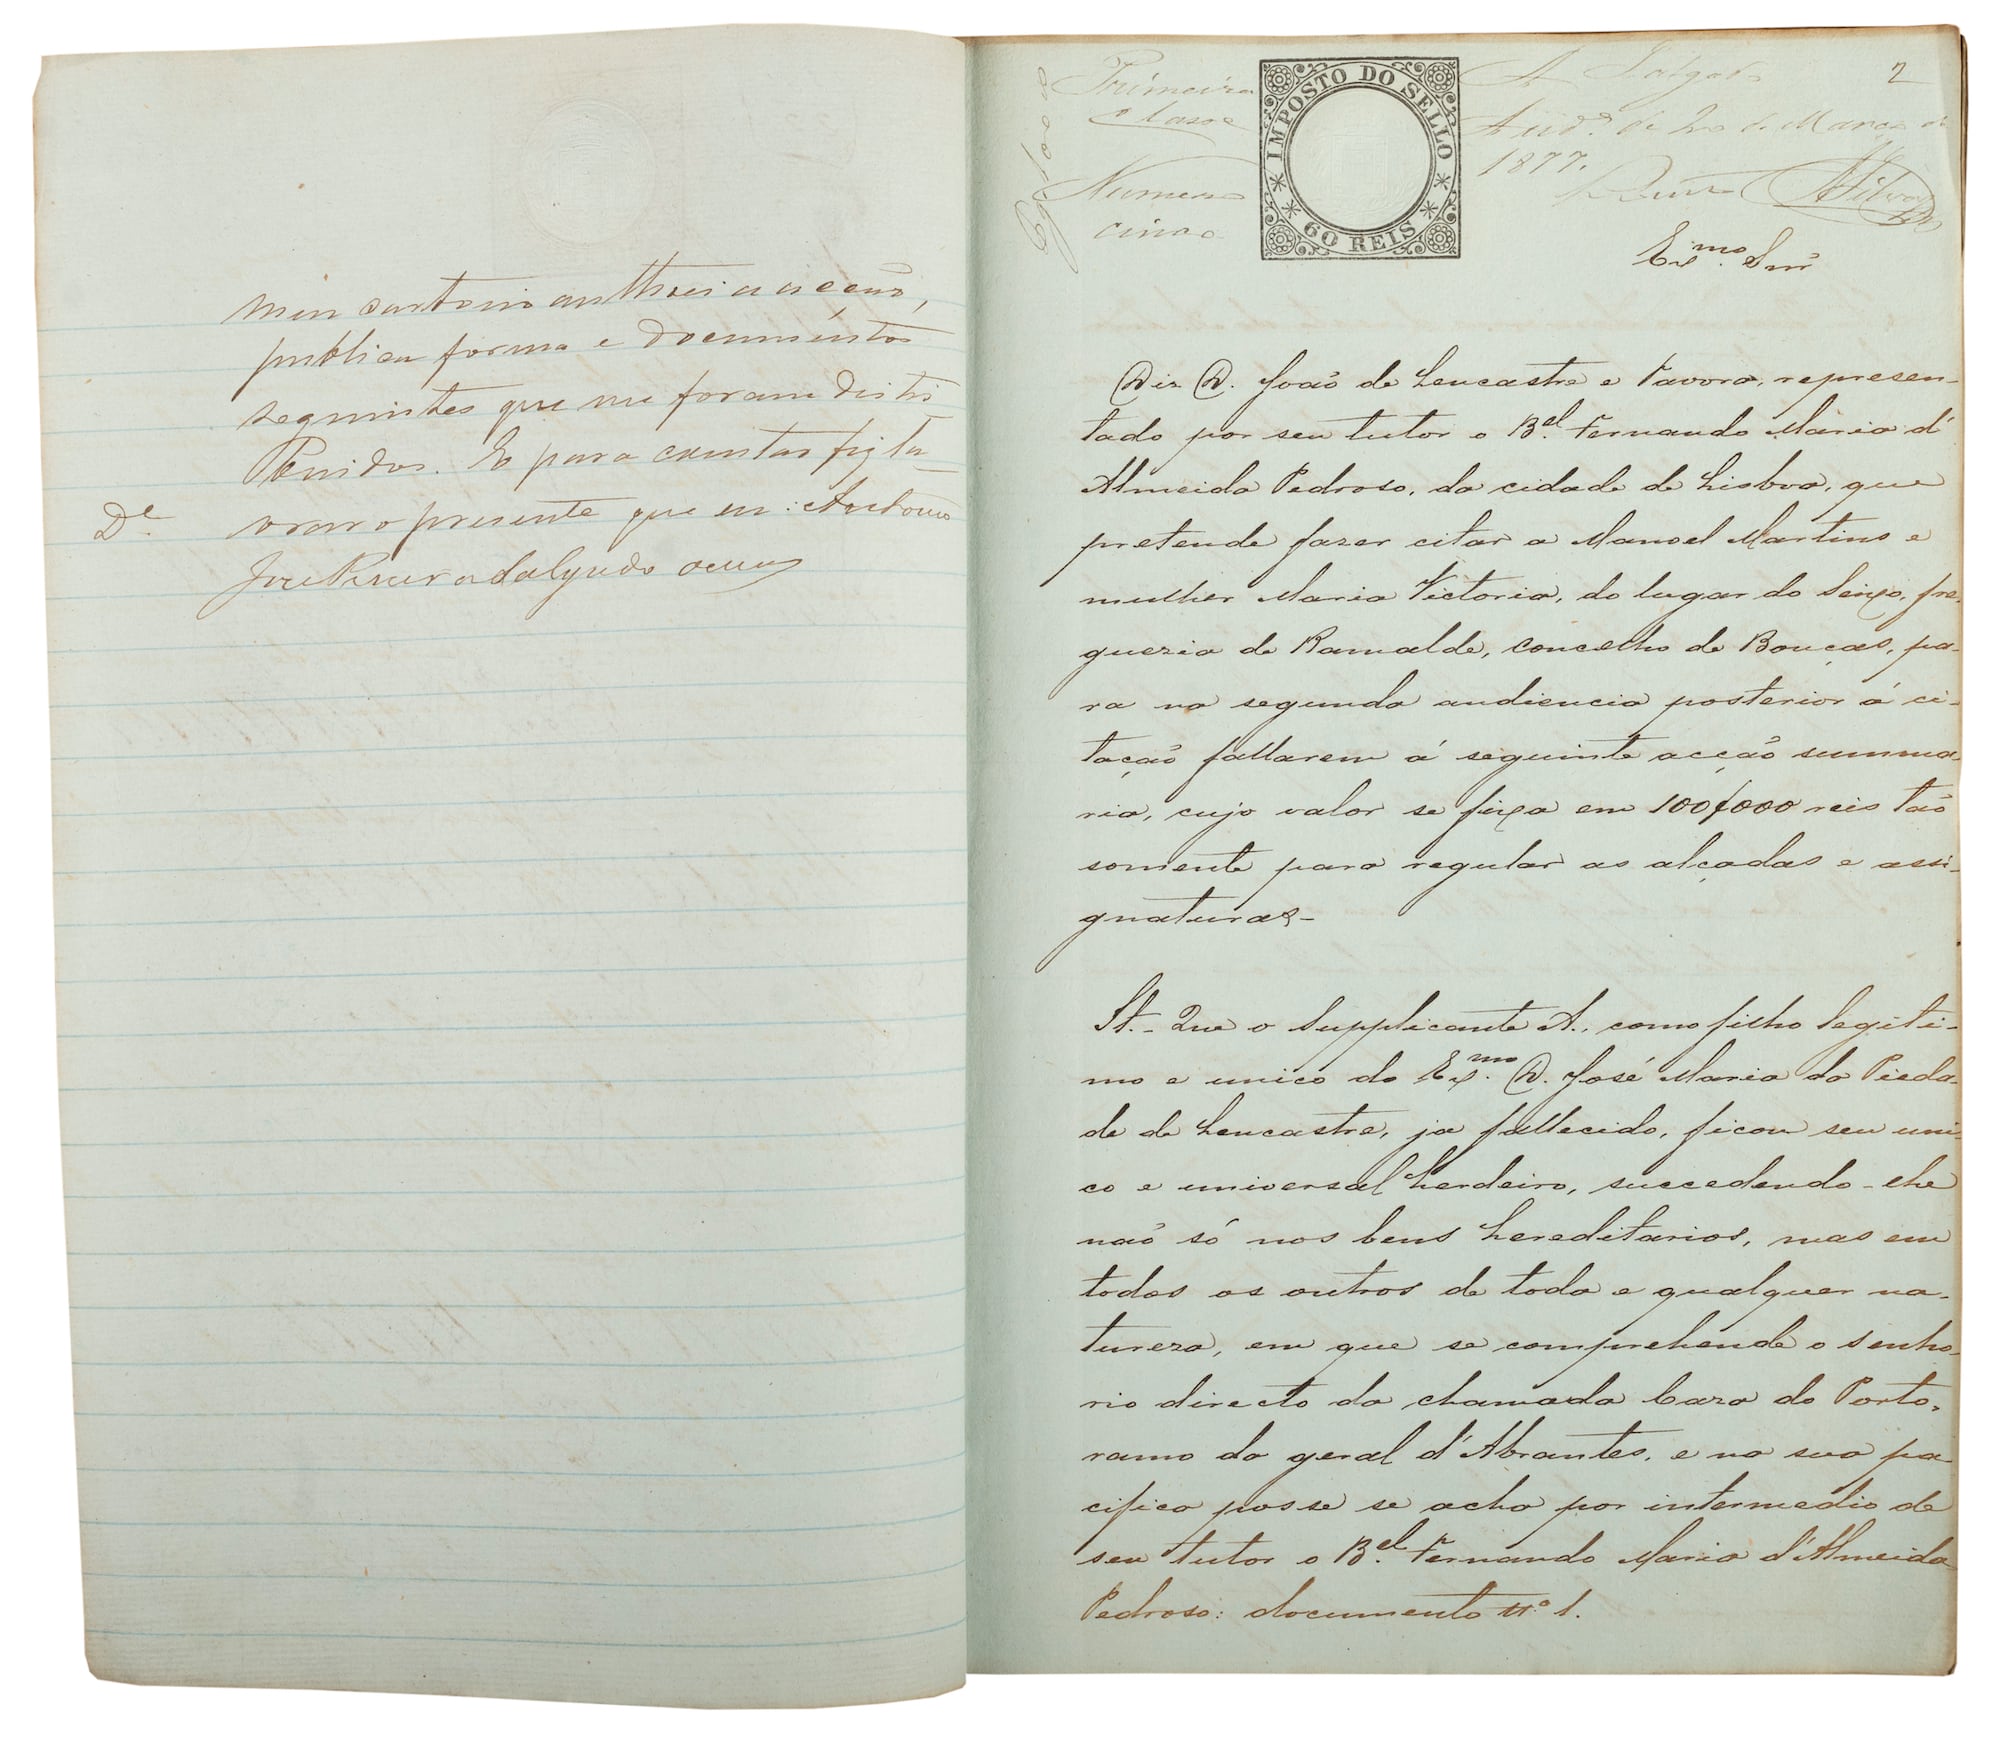 meu cartorio authuei a acção,
publica forma e documentos
seguintes que me foram distri
buidos. E para constar fiz la
D.e vrar o presente que eu: Antonio
José Pereira Salgado o
2
Primeira
classe
Numero
cinco
IMPOSTO DO SELLO
60 REIS
A Salgado
Aud.a de 20 de Março de
1877.
Silva
Ex.mo Snr
Diz D. João de Lencastre e Tavora, represen-
tado por seu tutor o B.el Fernando Maria d'
Almeida Pedroso, da cidade de Lisboa, que
pretende fazer citar a Manoel Martins e
mulher Maria Victoria, do lugar do Seixo, fre-
guezia de Ramalde, concelho de Bouças, pa-
ra na segunda audiencia posterior á ci-
tação fallarem á seguinte acção summa-
ria, cujo valor se fixa em 100$000 reis tão
somente para regular as alçadas e assi-
gnaturas-
St.- Que o Supplicante A., como filho legiti-
mo e unico do Ex.mo D. José Maria da Pieda-
de de Lencastre, ja fallecido, ficou seu uni-
co e universal herdeiro, succedendo-lhe
não só nos bens hereditarios, mas em
todos os outros de toda e qualquer na-
tureza, em que se comprehende o senho-
rio directo da chamada Caza do Porto,
ramo da geral d'Abrantes, e na sua pa
cifica posse se acha por intermedio de
seu tutor o B.el Fernando Maria d'Almeida
Pedroso: documento n.o 1.